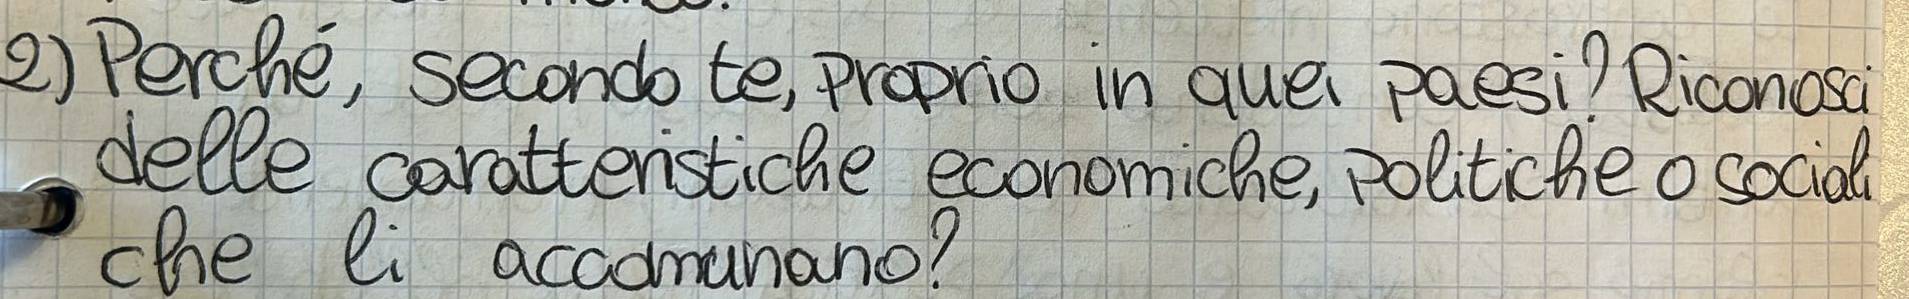 2) Perché, secondo te, proprio in quei paesi? Riconosci
delle caratteristiche economiche, politiche o sociali
che li accomunano?